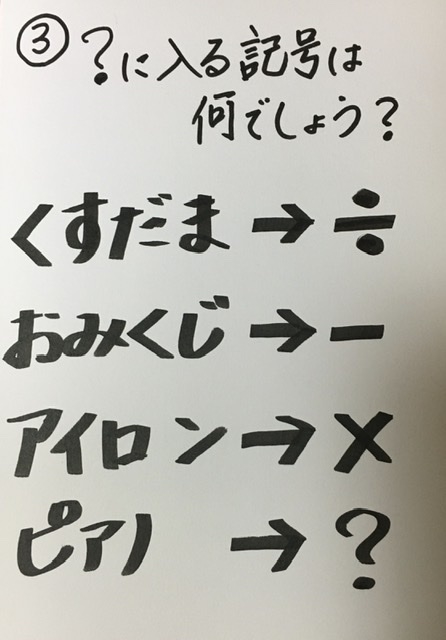 ③ ?に入る記号は
何でしょう?
くすだま→÷
おみくじ→−
アイロン→×
ピアノ→?